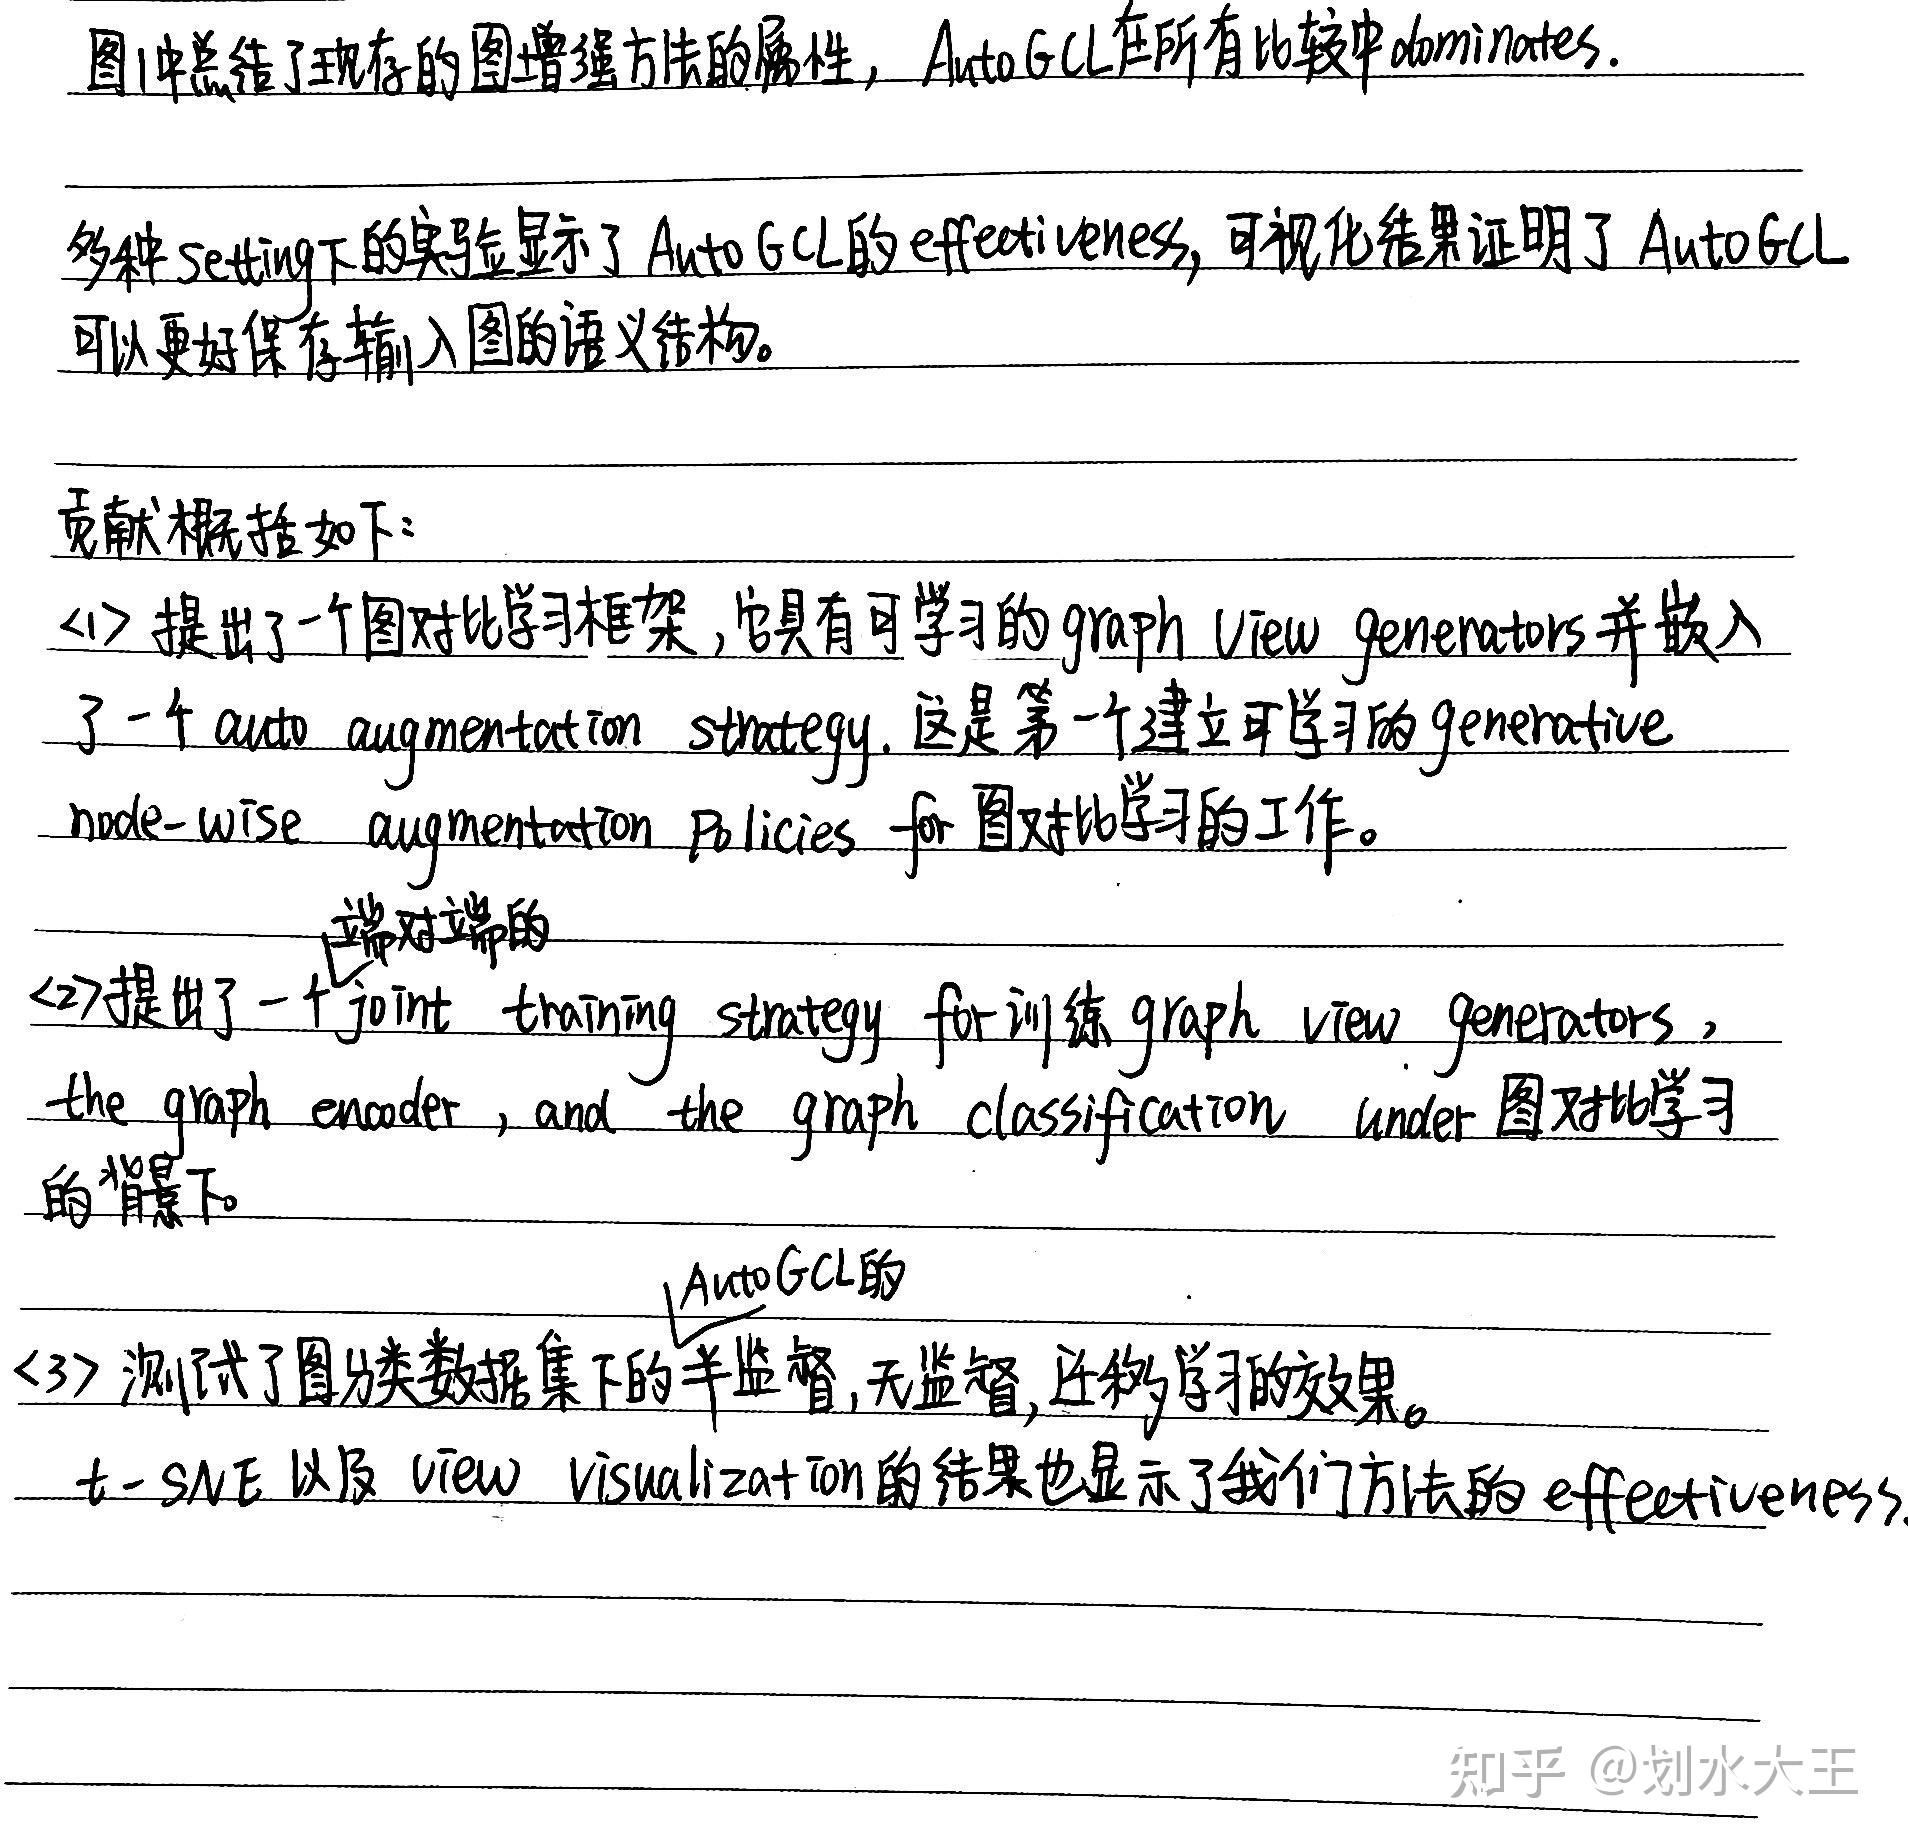 图1中总结了现存的图增强方法的属性，AutoGCL在所有比较中dominates.
多种setting下的实验显示了AutoGCL的effectiveness,可视化结果证明了AutoGCL
可以更好保存输入图的语义结构。
贡献概括如下：
<1> 提出了一个图对比学习框架,它具有可学习的graph view generators并嵌入
了一个auto augmentation strategy.这是第一个建立可学习的generative
node-wise augmentation policies for图对比学习的工作。
端对端的
<2>提出了一个joint training strategy for训练graph view generators,
the graph encoder, and the graph classification under图对比学习
的背景下。
AutoGCL的
<3> 测试了图分类数据集下的半监督,无监督,迁移学习的效果。
t-SNE以及view visualization的结果也显示了我们方法的effectiveness.
知乎 @划水大王